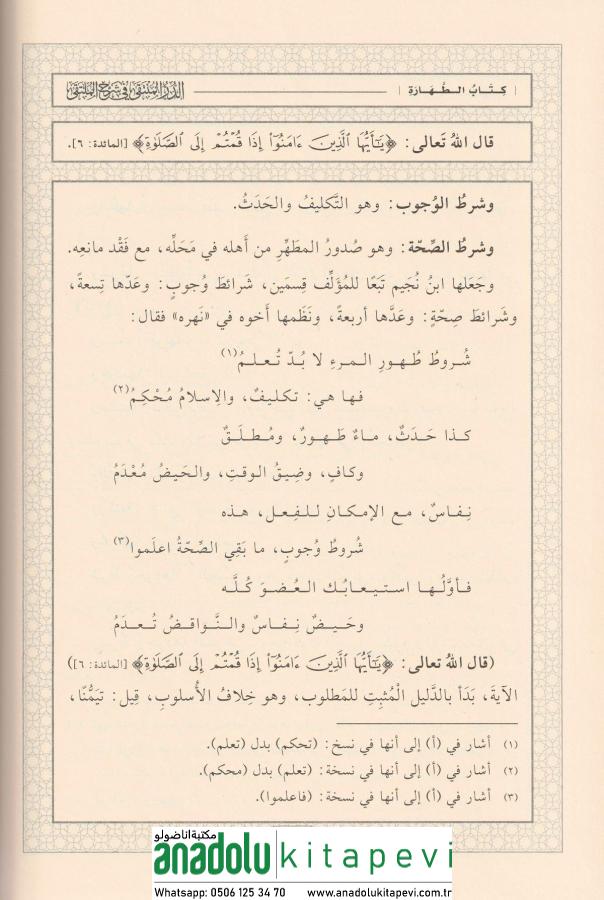 كِتَابُ الـطَّـهَـارَةِ الدُّرُّ المُنْتَقَى فِي شَرْحِ المُلْتَقَى
قال اللهُ تَعالى: ﴿يَـٰٓأَيُّهَا ٱلَّذِينَ ءَامَنُوٓا۟ إِذَا قُمْتُمْ إِلَى ٱلصَّلَوٰةِ﴾ [المائدة: ٦].
وشرطُ الوُجوب: وهو التَّكليفُ والحَدَثُ.
وشرطُ الصِّحّة: وهو صُدورُ المطَهِّرِ من أَهله في مَحَلِّه، مع فَقْد مانعِه.
وجَعَلها ابنُ نُجَيم تَبَعًا للمُؤَلِّف قِسمَين، شَرائطَ وُجوبٍ: وعَدَّها تِسعةً،
وشَرائطَ صِحّةٍ: وعَدَّها أربعةً، ونَظَمها أَخوه في «نَهره» فقال:
شُـروطُ طُـهـورِ الـمـرءِ لا بُـدّ تُـعـلـمُ(١)
فـها هيَ: تـكـليـفٌ، والاسلامُ مُحْكِـمُ(٢)
كـذا حَـدَثٌ، مـاءٌ طَـهـورٌ، ومُـطـلَـقٌ
وكـافٍ، وضِيقُ الـوقتِ، والحَيضُ مُعْدَمُ
نِـفـاسٌ، مـع الإمكـانِ لـلـفِـعـل، هـذه
شُروطُ وُجوبٍ، ما بَقِي الصِّحّةُ اعلَموا(٣)
فـأوَّلُـهـا اسـتـيـعـابُـك الـعُـضـوَ كُـلَّـه
وحَـيـضٌ نِـفـاسٌ والـنَّـواقـضُ تُـعـدَمُ
(قال اللهُ تعالى: ﴿يَـٰٓأَيُّهَا ٱلَّذِينَ ءَامَنُوٓا۟ إِذَا قُمْتُمْ إِلَى ٱلصَّلَوٰةِ﴾ [المائدة: ٦])
الآيةَ، بَدَأ بالدَّليل الْمُثبِت للمَطلوب، وهو خِلافُ الأُسلوبِ، قِيل: تَيَمُّنًا،
(١) أشار في (أ) إلى أنها في نسخ: (تحكم) بدل (تعلم).
(٢) أشار في (أ) إلى أنها في نسخة: (تعلم) بدل (محكم).
(٣) أشار في (أ) إلى أنها في نسخة: (فاعلموا).
مكتبة اناضولو
anadolu kitapevi
Whatsapp: 0506 125 34 70 www.anadolukitapevi.com.tr